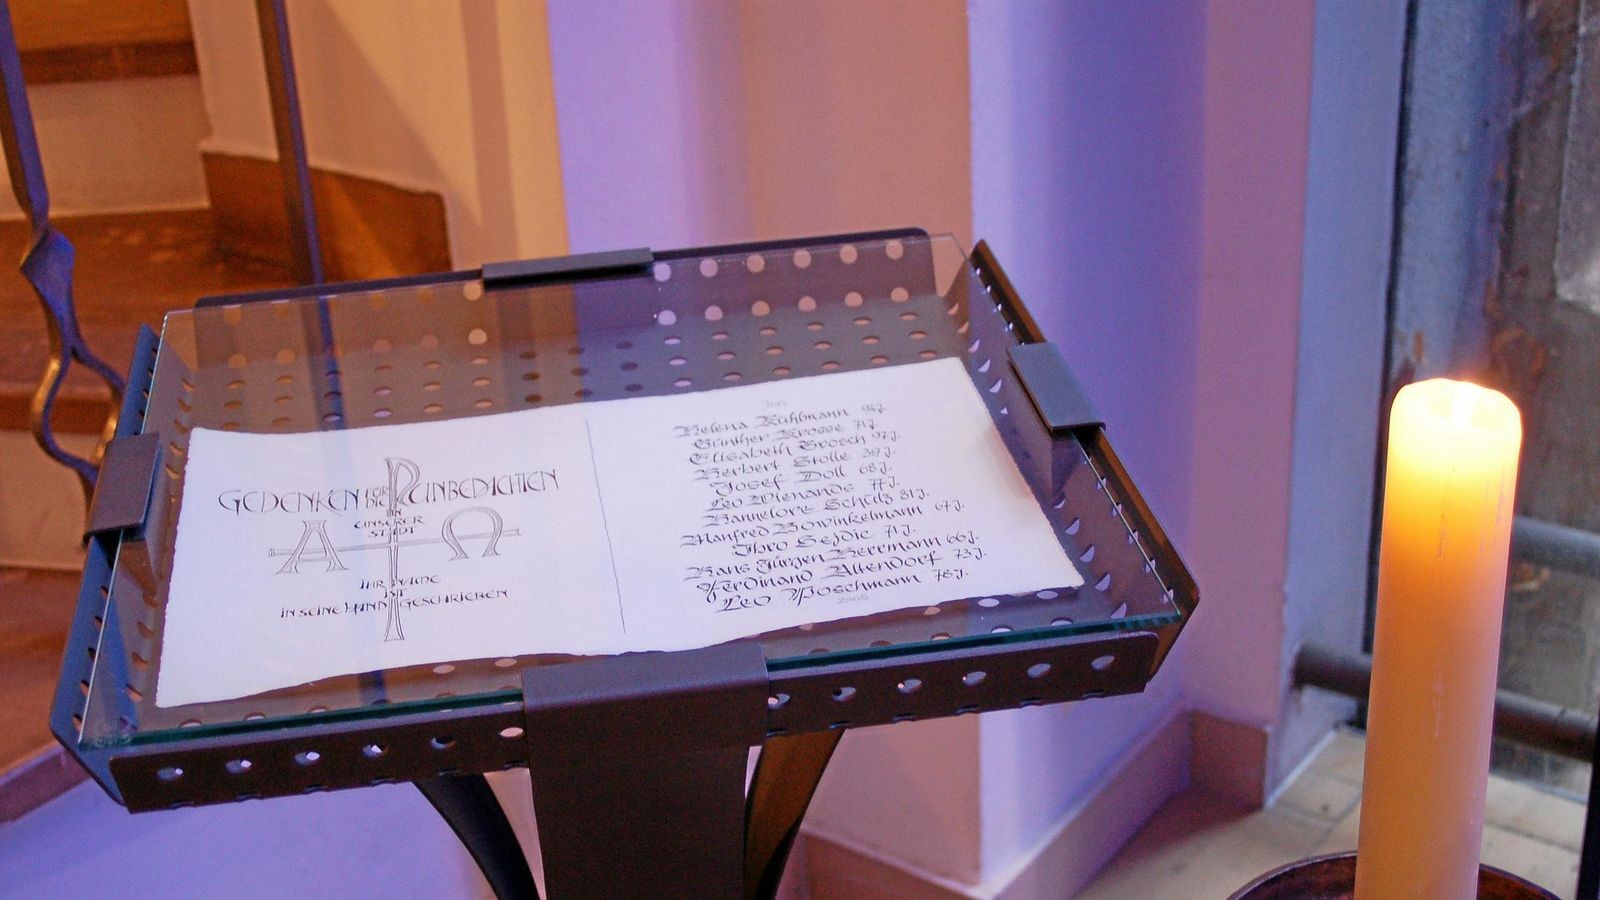 GEDENKEN FÜR DIE UNBEDACHTEN
IN
UNSERER
STADT
A Ω
IHR NAME
IST
IN SEINE HAND GESCHRIEBEN
Jan.
Helena Kühlmann 94J.
Günther Krosse 71J.
Elisabeth Brosch 97J.
Herbert Stolle 39J.
Josef Doll 68J.
Leo Wienands 77J.
Hannelore Schulz 81J.
Manfred Bowinkelmann 67J.
Ibro Sejdic 71J.
Hans Jürgen Herrmann 66J.
Ferdinand Altendorf 73J.
Leo Poschmann 78J.